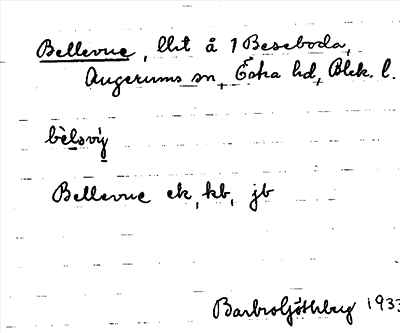 Bellevue, lht å 1 Beseboda,
Augerums sn, Östra hd, Blek. l.
bèlsvy
Bellevue ek, kb, jb
Barbro Göthberg 1933